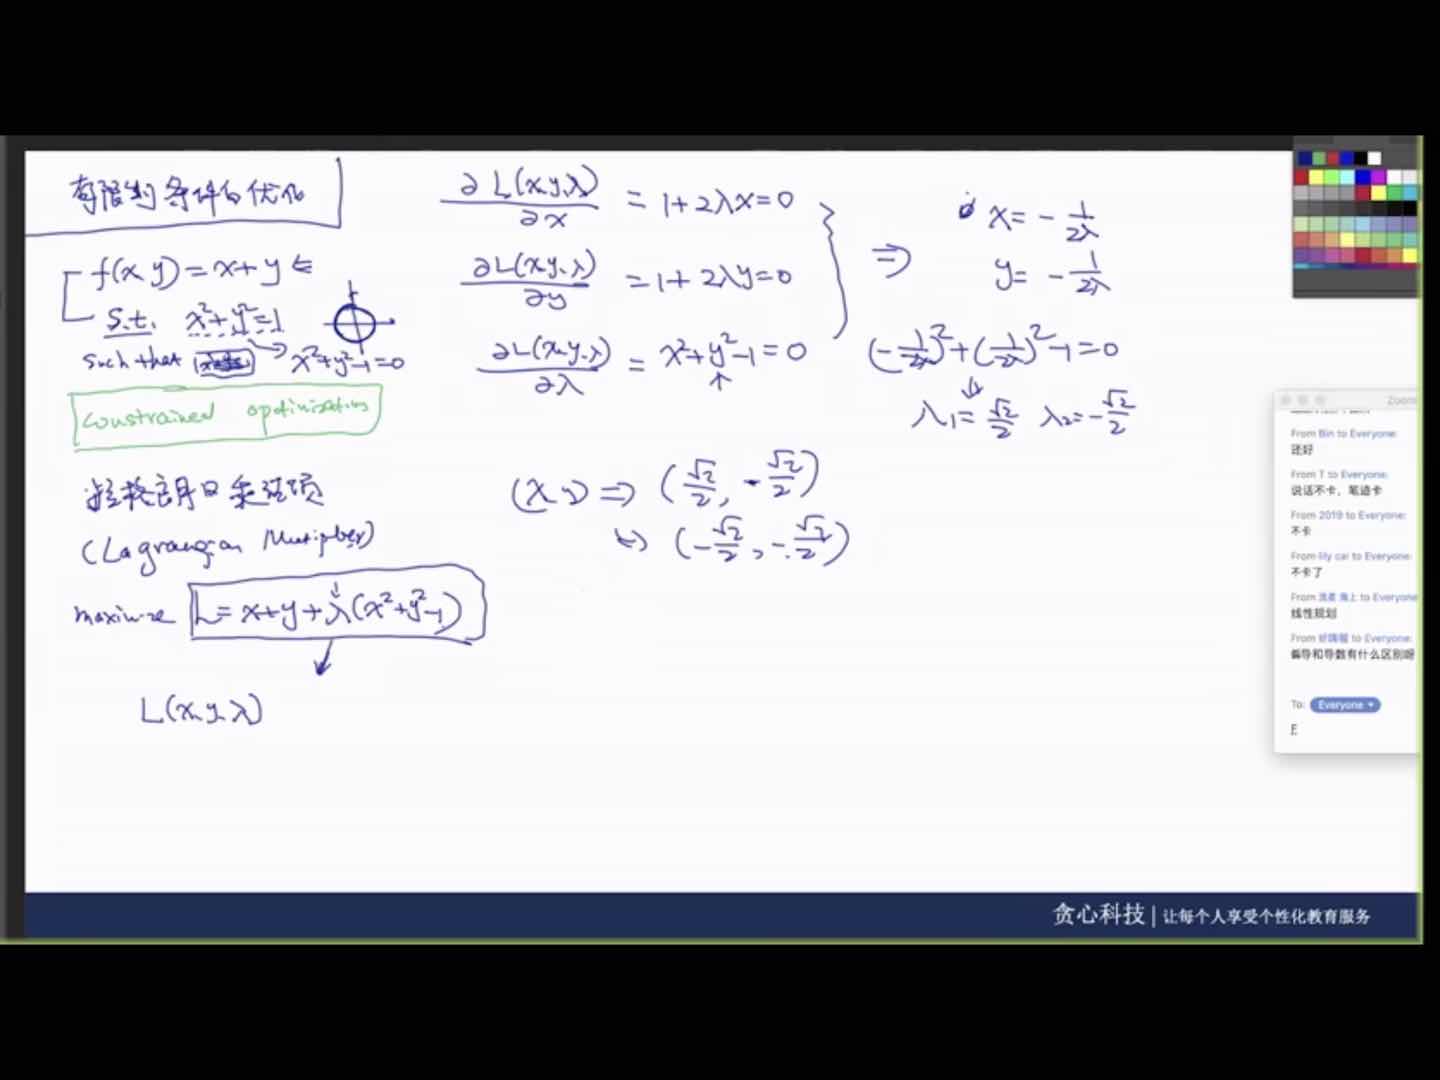 有限制条件的优化
f(x,y)=x+y ⇐
s.t. x²+y²=1
such that
x²+y²-1=0
constrained optimization
拉格朗日乘法项
(Lagrangian Multiplier)
maximize L=x+y+λ(x²+y²-1)
L(x,y,λ)
∂L(x,y,λ)/∂x = 1+2λx=0
∂L(x,y,λ)/∂y = 1+2λy=0
∂L(x,y,λ)/∂λ = x²+y²-1=0
⇒
x=-1/2λ
y=-1/2λ
(-1/2λ)²+(-1/2λ)²-1=0
λ₁=√2/2 λ₂=-√2/2
(x,y)⇒(√2/2, -√2/2)
(-√2/2, -√2/2)
Zoom
From Bin to Everyone:
还好
From T to Everyone:
说话不卡，笔迹卡
From 2019 to Everyone:
不卡
From lily cai to Everyone:
不卡了
From 海上 to Everyone
线性规划
to Everyone:
偏导和导数有什么区别呀
To: Everyone
贪心科技 | 让每个人享受个性化教育服务